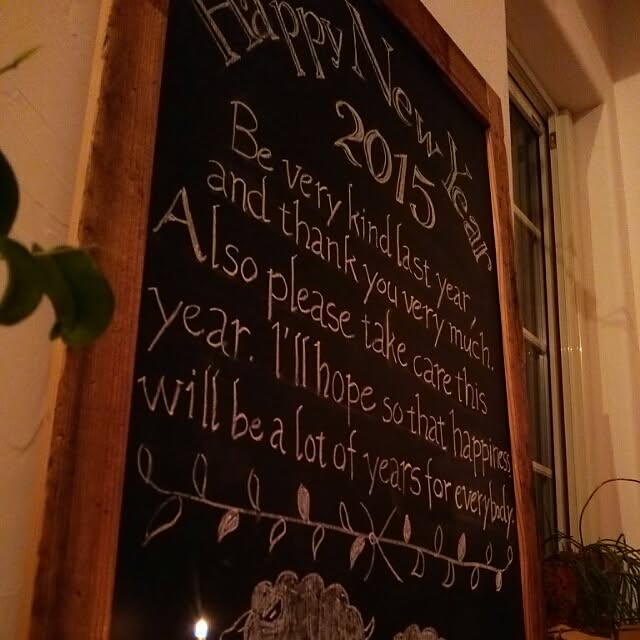 Happy New Year
2015
Be very kind last year,
and thank you very much.
Also please take care this
year. I'll hope so that happiness
will be a lot of years for everybody.